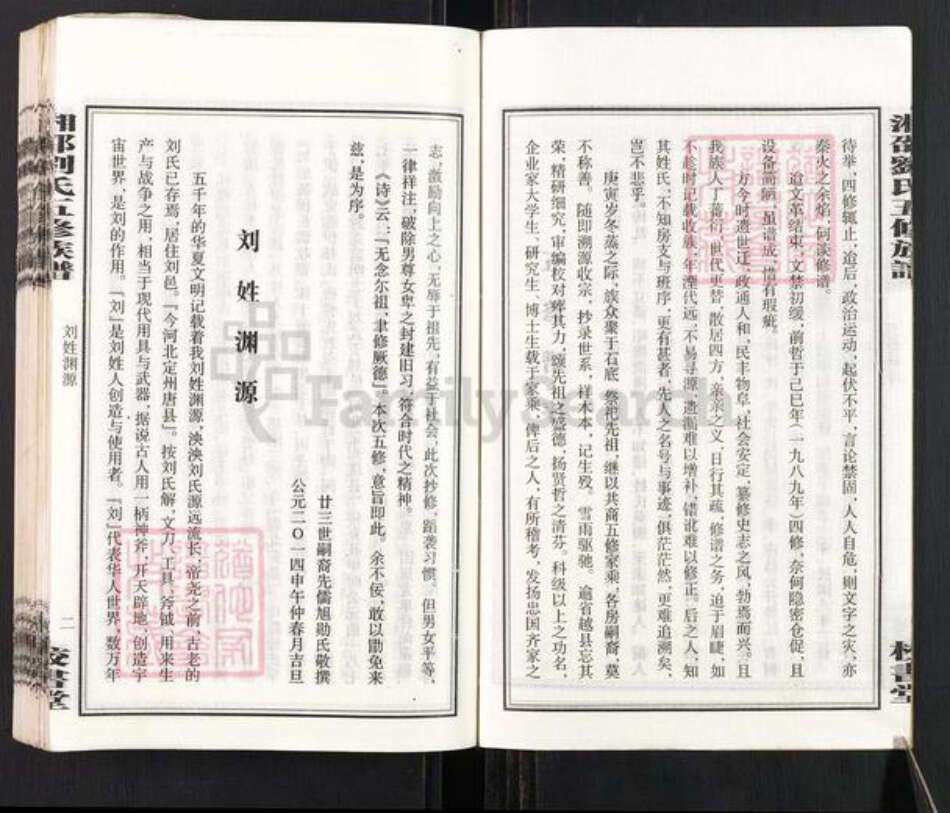 湘邵劉氏五修族譜
校書堂
待举，四修辄止，迨后，政治运动，起伏不平，言论禁固，人人自危，则文字之灾，亦
秦火之余焰，何谈修谱。
迨文革结束，文禁初缓，前哲于己巳年（一九八九年）四修，奈何隐密仓促，且
设备简陋，虽谱成，惜有瑕疵。
方今时遗世迁，政通人和，民丰物阜，社会安定，纂修史志之风，勃焉而兴。且
我族人丁蕃衍，世代更替，散居四方，亲亲之义，日行其疏，修谱之务，迫于眉睫，如
不趁时记载收族，年湮代远，不易寻源，遗漏难以增补，错讹难以修正。后之人，知
其姓氏，不知房支与班序，更有甚者，先人之名号与事迹，俱茫茫然，更难追溯矣，
岂不悲乎。
庚寅岁冬蒸之际，族众聚于石底，祭祀先祖，继以共商五修家乘，各房嗣裔，莫
不称善。随即溯源收宗，抄录世系，样木本，记生殁。雪雨驱驰。逾省越县，忘其
荣，精研细究，审编校对，殚其力，颂先祖之盛德，扬贤哲之清芬。科级以上之功名，
企业家大学生、研究生、博士生载于家乘，俾后之人，有所稽考，发扬忠国齐家之
志，激励向上之心，无辱于祖先，有益于社会，此次抄修，蹈袭习惯。但男女平等，
一律祥注，破除男尊女卑之封建旧习，符合时代之精神。
《诗》云：『无念尔祖，聿修厥德』，本次五修，意旨即此。余不佞，敢以勖免来
兹，是为序。
廿三世嗣裔先儒旭勋氏敬撰
公元二0一四申午仲春月吉旦
刘姓渊源
五千年的华夏文明记载着我刘姓渊源，泱泱刘氏源远流长，帝尧之前，古老的
刘氏已存焉，居住刘邑。『今河北定州唐县』。按刘氏解，文刀，工具，斧钺，用来生
产与战争之用，相当于现代用具与武器，据说古人用一柄神斧，开天辟地，创造宇
宙世界，是刘的作用。『刘』是刘姓人创造与使用者。『刘』代表华人世界，数万年
湘邵劉氏五修族譜
刘姓渊源
二
校書堂
FamilySearch